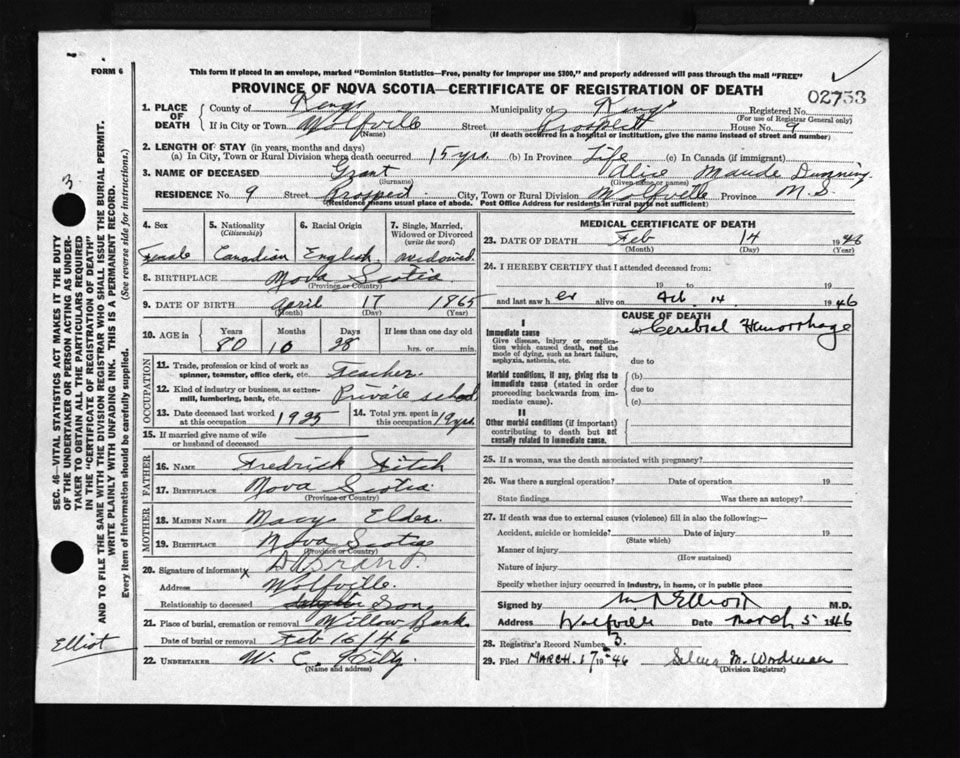 FORM 6
This form if placed in an envelope, marked "Dominion Statistics—Free, penalty for improper use $300," and properly addressed will pass through the mail "FREE"
PROVINCE OF NOVA SCOTIA—CERTIFICATE OF REGISTRATION OF DEATH
02753
1. PLACE OF DEATH County of Kings Municipality of Kings Registered No. (For use of Registrar General only)
If in City or Town Wolfville (Name) Street Prospect House No. 9
(If death occurred in a hospital or institution, give the name instead of street and number)
2. LENGTH OF STAY (in years, months and days)
(a) In City, Town or Rural Division where death occurred 15 yrs. (b) In Province Life (c) In Canada (if immigrant)
3. NAME OF DECEASED Grant (Surname) Alice Maude (Given name or names)
RESIDENCE No. 9 Street Prospect City, Town or Rural Division Wolfville Province N.S.
(Residence means usual place of abode. Post Office Address for residents in rural parts not sufficient)
4. Sex 5. Nationality (Citizenship) 6. Racial Origin 7. Single, Married, Widowed or Divorced (write the word)
Female Canadian English widowed
8. BIRTHPLACE Nova Scotia (Province or Country)
9. DATE OF BIRTH April (Month) 17 (Day) 1865 (Year)
10. AGE in Years Months Days If less than one day old
80 10 28 hrs. or min.
OCCUPATION
11. Trade, profession or kind of work as spinner, teamster, office clerk, etc. Teacher.
12. Kind of industry or business, as cotton-mill, lumbering, bank, etc. Private school
13. Date deceased last worked at this occupation 1925 14. Total yrs. spent in this occupation 19 yrs.
15. If married give name of wife or husband of deceased
FATHER
16. NAME Fredrick Fitch
17. BIRTHPLACE Nova Scotia (Province or Country)
MOTHER
18. MAIDEN NAME Mary Elder
19. BIRTHPLACE Nova Scotia (Province or Country)
20. Signature of informant x
Address Wolfville.
Relationship to deceased daughter Son.
21. Place of burial, cremation or removal Willow Bank
Date of burial or removal Feb 16/46
22. UNDERTAKER W. C. (Name and address)
MEDICAL CERTIFICATE OF DEATH
23. DATE OF DEATH Feb (Month) 14 (Day) 1946 (Year)
24. I HEREBY CERTIFY that I attended deceased from:
19 to 19
and last saw her alive on Feb. 14. 1946
CAUSE OF DEATH
I
Immediate cause Cerebral Hemorrhage
Give disease, injury or complication which caused death, not the mode of dying, such as heart failure, asphyxia, asthenia, etc.
due to
Morbid conditions, if any, giving rise to immediate cause (stated in order proceeding backwards from immediate cause).
(b)
due to
(c)
II
Other morbid conditions (if important) contributing to death but not causally related to immediate cause.
25. If a woman, was the death associated with pregnancy?
26. Was there a surgical operation? Date of operation 19
State findings Was there an autopsy?
27. If death was due to external causes (violence) fill in also the following:—
Accident, suicide or homicide? (State which) Date of injury 19
Manner of injury (How sustained)
Nature of injury
Specify whether injury occurred in industry, in home, or in public place
Signed by Elliott M.D.
Address Wolfville Date March 5 1946
28. Registrar's Record Number 3.
29. Filed MARCH. 1946 M. Woodman (Division Registrar)
SEC. 46—VITAL STATISTICS ACT MAKES IT THE DUTY
OF THE UNDERTAKER OR PERSON ACTING AS UNDER-
TAKER TO OBTAIN ALL THE PARTICULARS REQUIRED
IN THE "CERTIFICATE OF REGISTRATION OF DEATH"
AND TO FILE THE SAME WITH THE DIVISION REGISTRAR WHO SHALL ISSUE THE BURIAL PERMIT.
WRITE PLAINLY WITH UNFADING INK. THIS IS A PERMANENT RECORD.
Every item of information should be carefully supplied. (See reverse side for instructions.)
3
Elliot